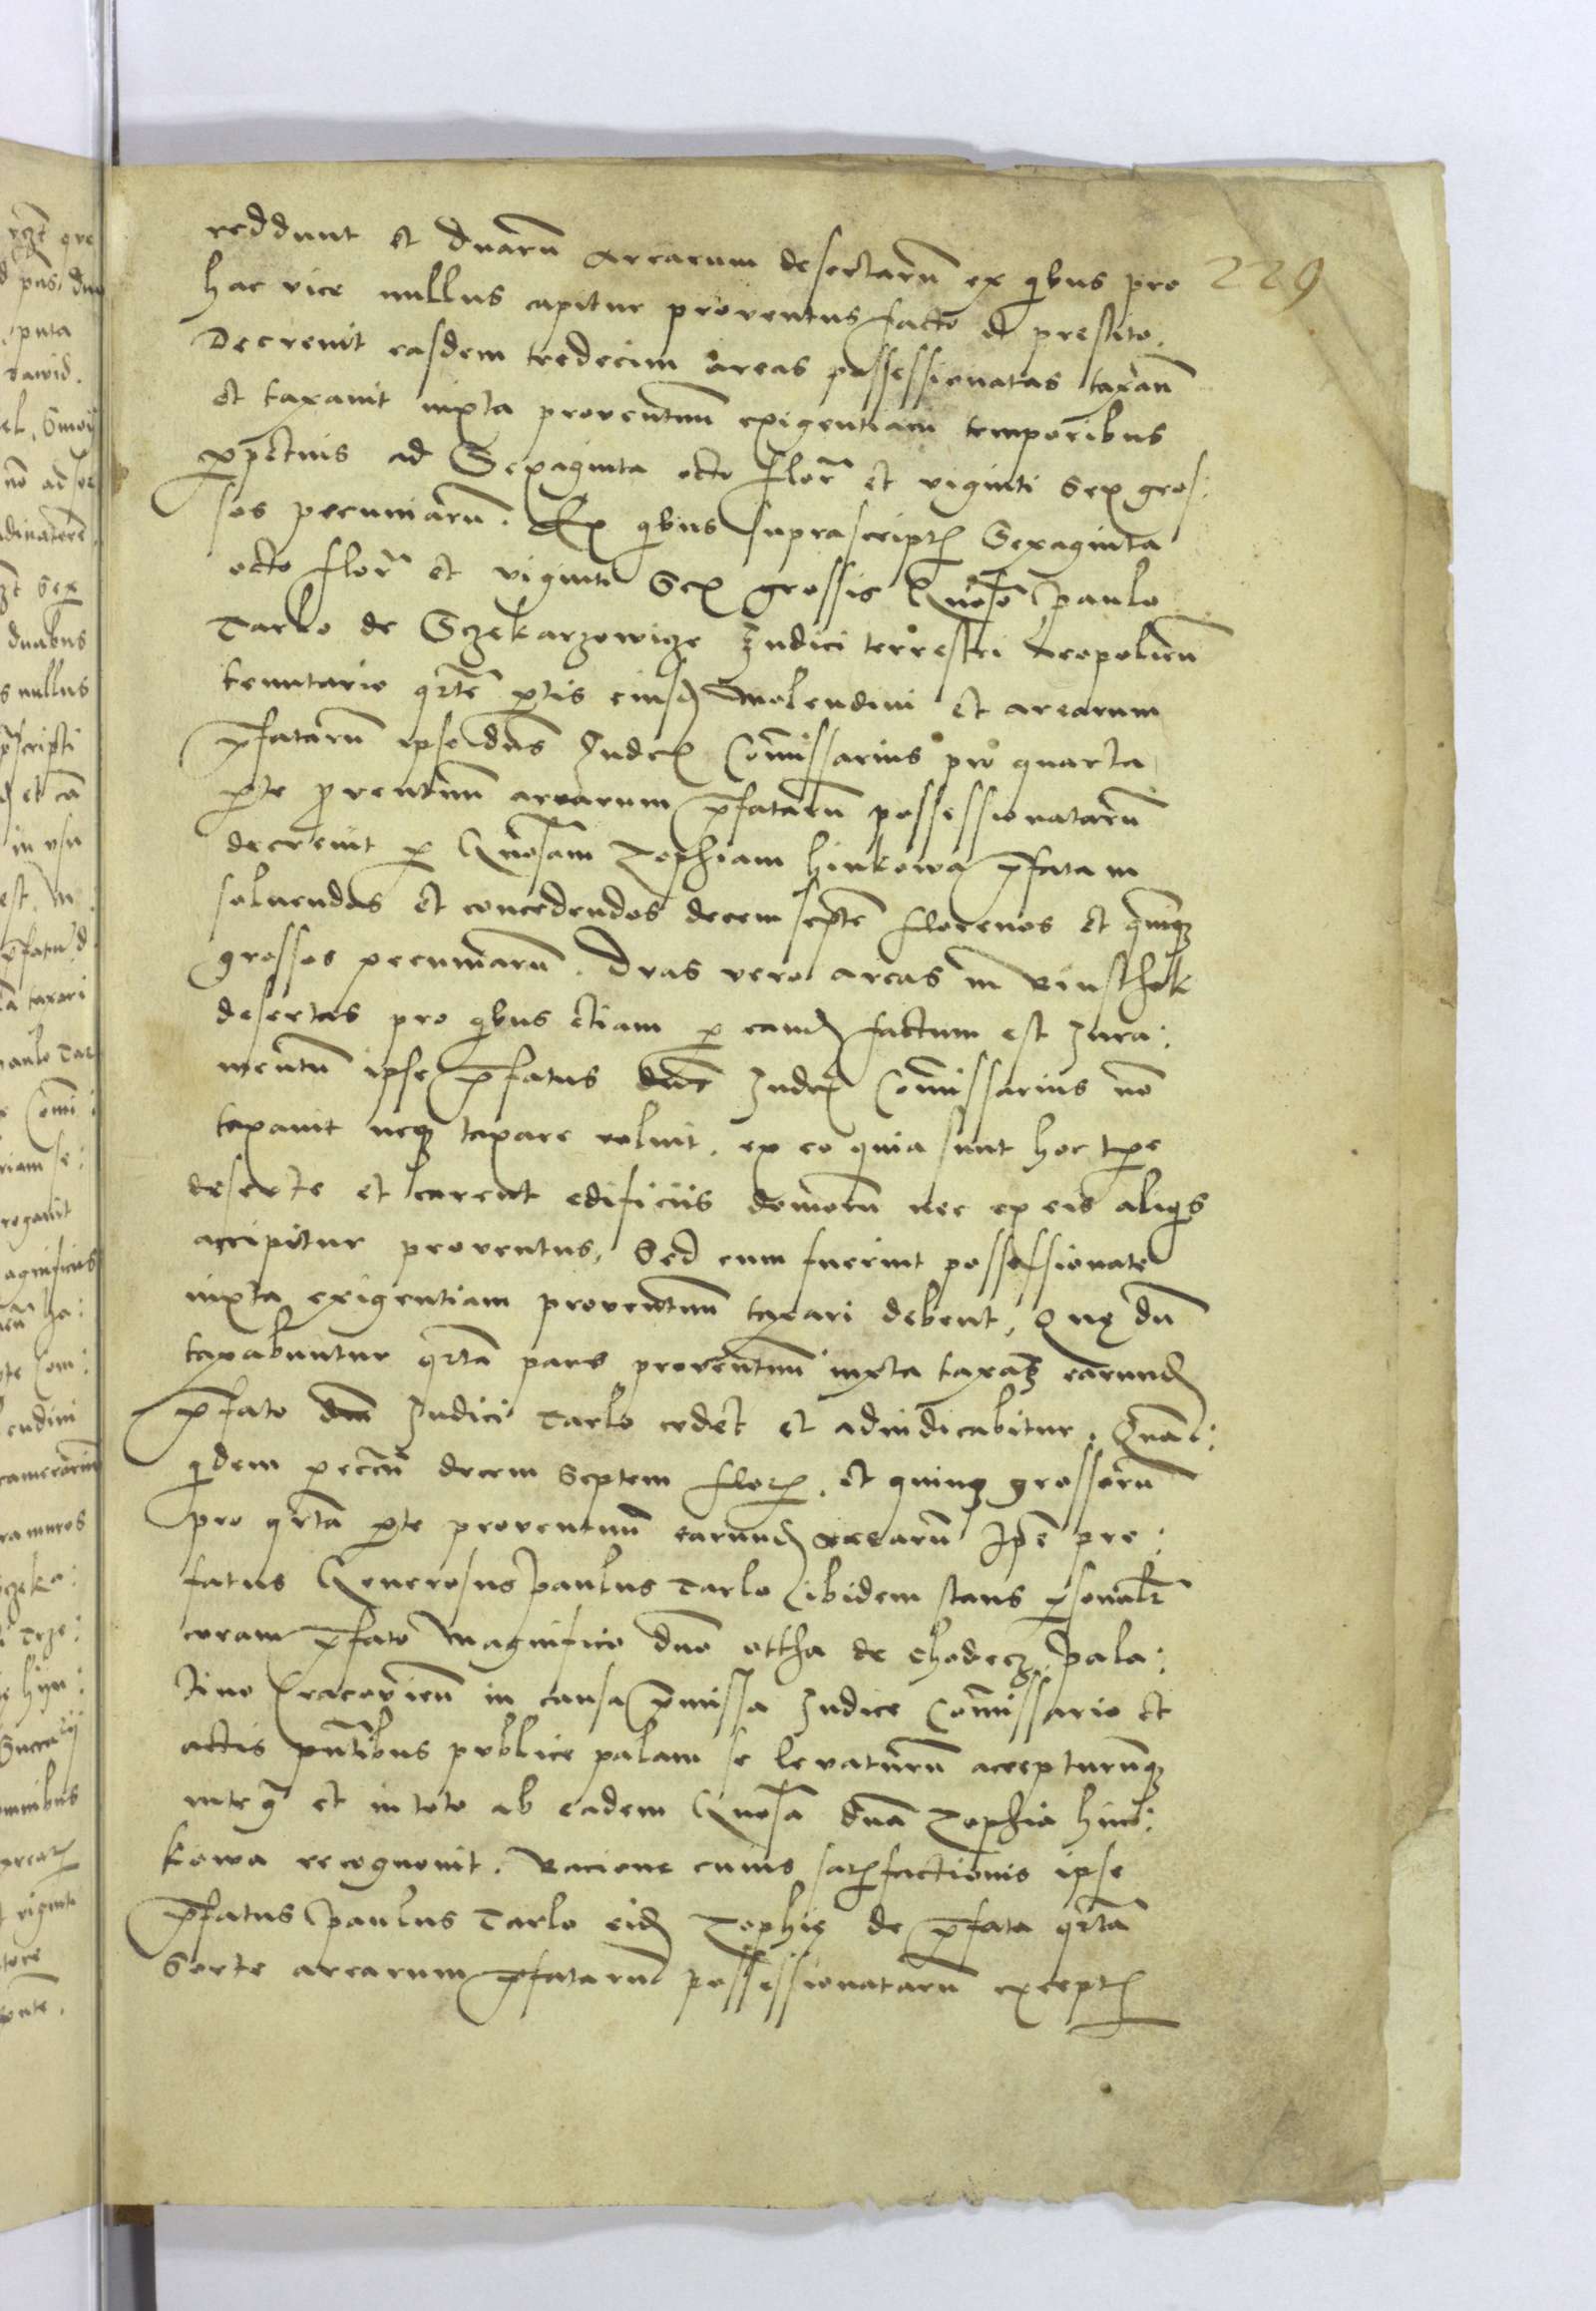 reddunt et duarū arearum desertarū ex qibus pro 229
hac vice nullus capitur proventus facto et prestito.
Decrevit easdem tredecim areas possessionatas taxan̄
et taxavit iuxta proventuū exigentiam temporibus
ꝑpetuis ad Sexaginta octo flor̄ et viginti Sex gros:
sos pecuniarū. Ex qibus suprascriptꝭ Sexaginta
octo flor̄ et viginti Sex grossis Gnoso Paulo
Tarlo de Sczekarzowize Judici terrestri Leopolien̄
tenutario qrte ꝑtis eiusd molendini et arearum
p̄fatarū ipse dn̄s Judex Com̄issarius pro quarta
ꝑte proventuū arearum p̄fatarū possessionatarū
decrevit ꝑ Gnosam Zophiam hinkowa p̄fatam
solvendos et concedendos decem septē florenos et qinqꝫ
grossos pecuniarū. Duas vero areas in Rinsthok
desertas pro qibus etiam ꝑ eand factum est Jura:
mentū ipse p̄fatus dn̄s Judex Com̄issarius nō
taxavit neqꝫ taxare voluit, ex eo quia sunt hoc tꝑe
deserte et carent edificiis domorū nec ex eis aliqis
accipitur proventus, Sed cum fuerint possessionate
iuxta exigentiam proventuū taxari debent, Que dū
taxabuntur qrta pars proventuū iuxta taxam earund
p̄fato dn̄o Judici Tarlo cedet et adiudicabitur. Quas:
qidem peccn̄ decem Septem flor, et quinqꝫ grossorū
pro qrta ꝑte proventuū earund arearū Ipē pre:
fatus Generosus Paulus Tarlo ibidem stans ꝑsonalr̄
coram p̄fato Magnifico dn̄o ottha de Chodecz Pala:
tino Cracovien̄ in causa p̄missa Judice Com̄issario et
actis pn̄tibus publice palam se levaturū accepturūqꝫ
integre et in toto ab eadem Gnosa dn̄a Zophia hin:
kowa recognovit. Racione cuius satisfactionis ipse
p̄fatus Paulus Tarlo eid Zophie de p̄fata qrta
Sorte arearum p̄fatarū possessionatarū exceptꝭ